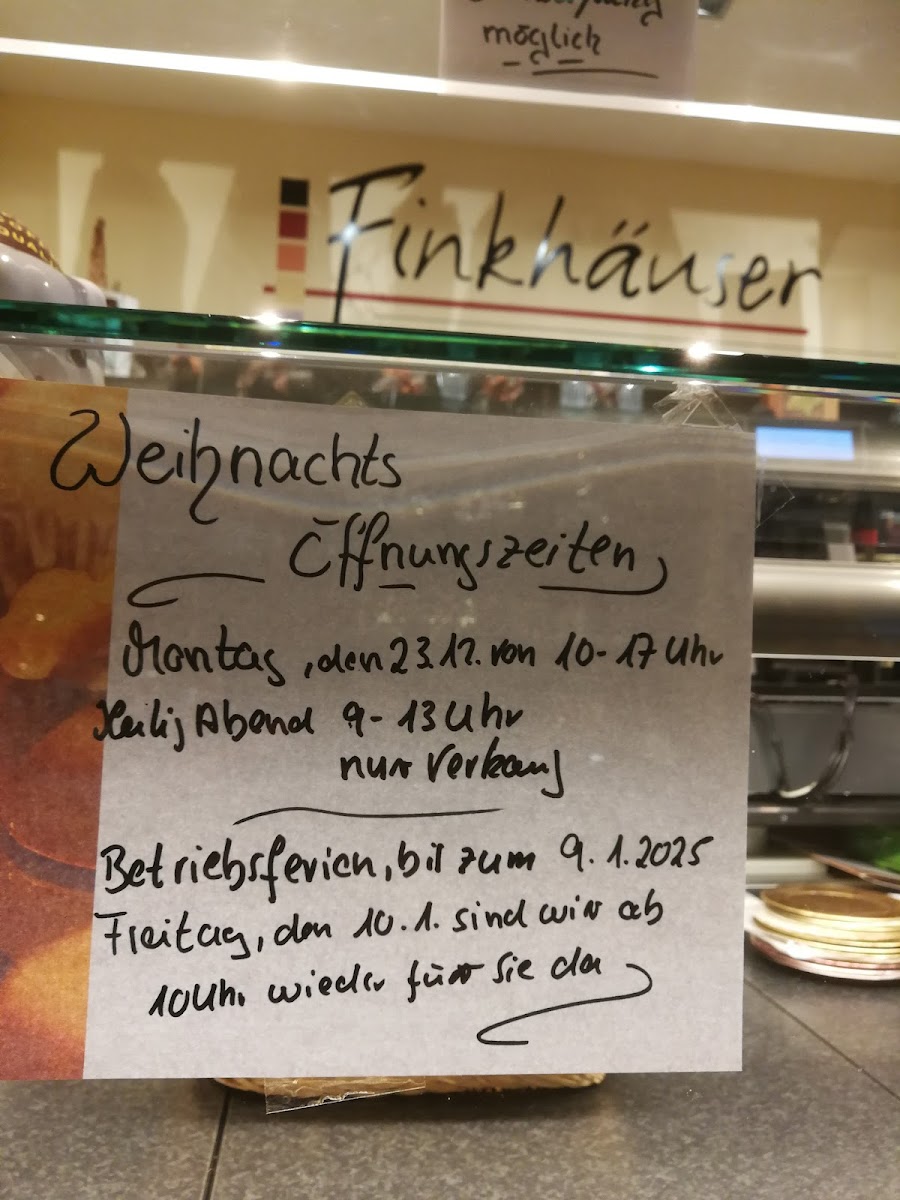 möglich
Finkhäuser
Weihnachts
Öffnungszeiten
Montag, den 23.12. von 10-17 Uhr
Heilig Abend 9-13 Uhr
nur Verkauf
Betriebsferien, bis zum 9.1.2025
Freitag, den 10.1. sind wir ab
10 Uhr wieder für Sie da